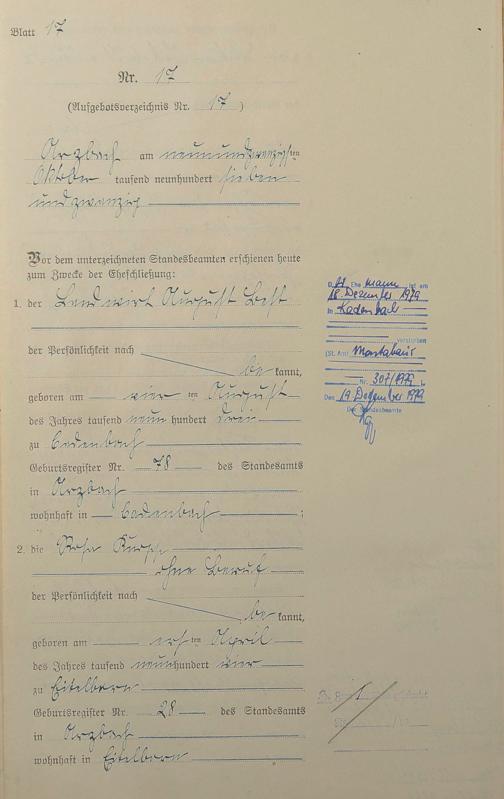 Blatt 17
Nr. 17
(Aufgebotsverzeichnis Nr. 17)
Arzbach am neunundzwanzigsten
Oktober tausend neunhundert sieben
undzwanzig
Vor dem unterzeichneten Standesbeamten erschienen heute
zum Zwecke der Eheschließung:
1. der Landwirt August Best
der Persönlichkeit nach
be kannt,
geboren am vierten August
des Jahres tausend neun hundert drei
zu Cadenbach
Geburtsregister Nr. 78 des Standesamts
in Arzbach
wohnhaft in Cadenbach;
2. die Rosa
ohne Beruf
der Persönlichkeit nach
be kannt,
geboren am ersten April
des Jahres tausend neunhundert vier
zu Eitelborn
Geburtsregister Nr. 28 des Standesamts
in Arzbach
wohnhaft in Eitelborn
Ehemann ist am
18. Dezember 1979
in Kadenbach
verstorben
(St. Amt Montabaur
Nr. 307/1979).
Den 19. Dezember 1979
Der Standesbeamte